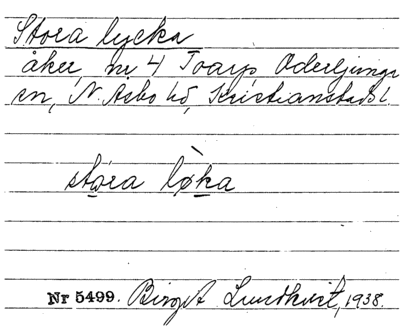 Stora lycka
åker, nr 4 Toarp, Oderljunga
sn, N. Åsbo hd, Kristianstads l.
stora lø̀ka
Nr 5499. Birgit Lundkvist, 1938.